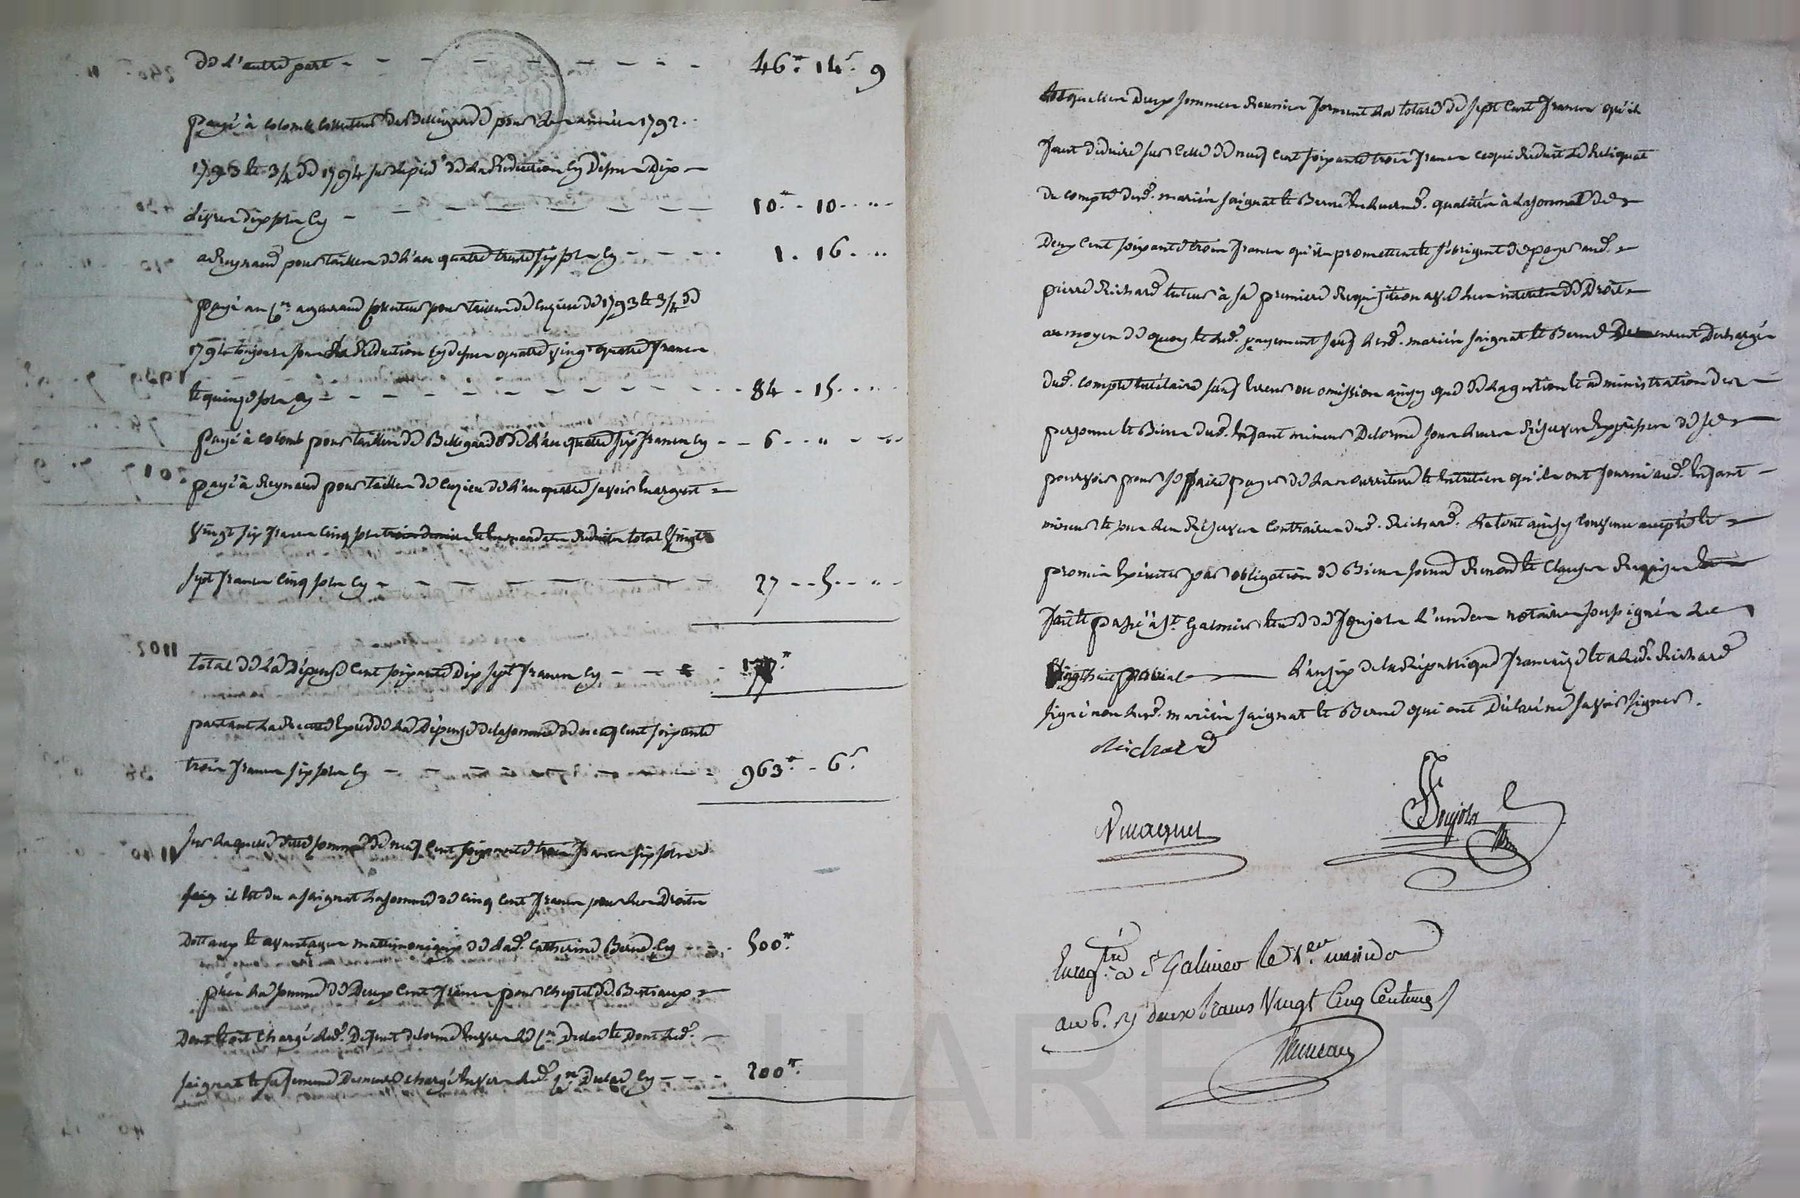 de l'autre part - - - 46# 14s 9
payé à colomb collecteur de Bellegarde pour les années 1792.
1793 et 3/4 de 1794 sur le pied de la Réduction cy Dessus Dix
livres dix sols cy - - - 10# - 10 - "
a Reynaud pour tailles de l'an quatre trente six sols cy - - 1 . 16 . "
payé au Cen. ageraud collecteur pour tailles de Cuzieu de 1793 et 3/4 de
1794 toujours sous la Réduction cy dessus quatre vingt quatre francs
et quinze sols cy - - - 84 - 15 - "
payé à colomb pour tailles de Bellegarde de l'an quatre six francs cy - - 6 - " - "
payé à Reynaud pour tailles de Cuzieu de l'an quatre savoir en argent
vingt six francs cinq sols et en mandats Réduits total vingt
sept francs cinq sols cy - - - 27 - 5 - "
total de la Dépense Cent soixante Dix sept francs cy - - 177#
partant la Recette Excède la Dépense de la somme de neuf cent soixante
trois francs six sols cy - - - 963# - 6s
sur laquelle dite somme de neuf cent soixante trois francs six sols
il est du a saignat la somme de cinq cent francs pour les Droits
Dottaux et avantages matrimoniaux de lad. Catherine Berne cy - - 500#
plus la somme de Deux Cent francs pour cheptel de Bestiaux
Dont étoit chargé led. Defunt delorme envers le Cen. Dulac et Dont led.
saignat et sa femme Demeurent chargé envers led. Cen Dulac cy - - 200#
Lesquelles Deux sommes Réunies forment la totale de sept cent francs qu'il
faut déduire sur celle de neuf cent soixante trois francs ce qui Réduit le Reliquat
du compte desd. mariés saignat et Berne en leursd. qualités à la somme de
Deux cent soixante trois francs qu'ils promettent et s'obligent de payer aud.
pierre Richard tuteur à sa premiere Requisition avec les intérêts de Droit
au moyen de quoy et led. payement fait lesd. mariés saignat et Berne Demeurent Déchargés
dud. compte tutélaire sauf erreur ou omission ainsy que de la gestion et administration des
personne et Biens dud. Enfant mineur Delorme sous leurs Réserves Expresses de se
pourvoir pour se faire payer de la nourriture et Entretien qu'ils ont fourni aud. Enfant
mineur et sous les Réserves Contraires dud. Richard. Le tout ainsy convenu accepté et
promis Exécuter par obligation de Biens soumis Renond et Clauses Requises
fait et passé à St. Galmier Etude de Jonjon l'un des notaires soussignés Le
vingt huit prairial - L'an six de la République française et a led. Richard
signé non lesd. mariés saignat et Berne qui ont Déclaré ne savoir signer.
Richard
Enregtré à St Galmier le 1er messidor
an 6. R deux francs Vingt Cinq Centimes